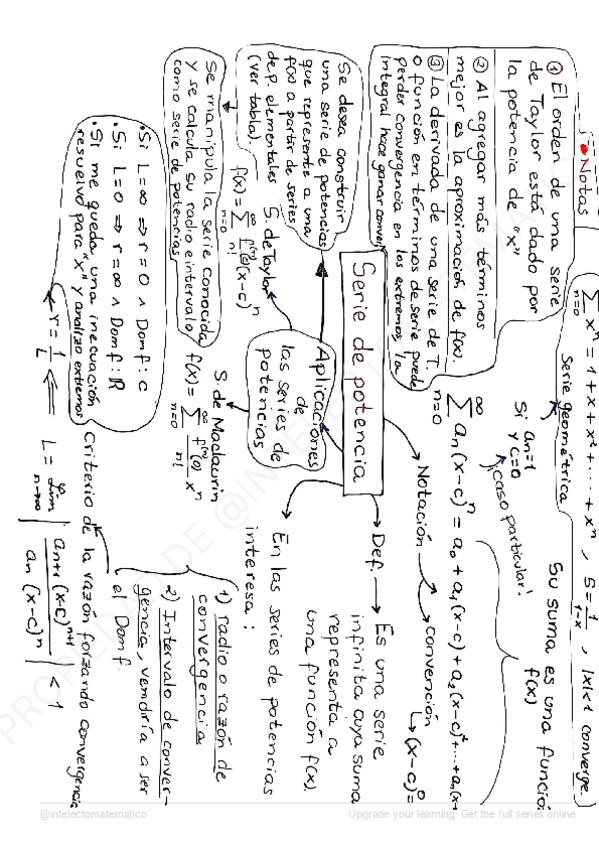 Notas
① El orden de una serie
de Taylor está dado por
la potencia de "x"
② Al agregar más términos
mejor es la aproximación de f(x).
③ La derivada de una serie de T.
o función en términos de serie puede
perder convergencia en los extremos, la
integral hace ganar
∑ xⁿ = 1 + x + x² + ... + xⁿ , S = 1/(1-x) , |x|<1 converge.
n=0
Serie geométrica
Si an=1
y c=0
¡caso particular!
Su suma es una función
f(x)
∞
∑ an(x-c)ⁿ = a₀ + a₁(x-c) + a₂(x-c)² + ... +
n=0
Notación → convención
↳ (x-c)⁰=
Serie de potencia
Def. → Es una serie
infinita cuya suma
representa a
una función f(x).
En las series de potencias
interesa:
1) radio o razón de
convergencia
2) Intervalo de conver-
gencia, vendría a ser
el Dom f.
Aplicaciones
de
las series de
potencias
Se desea construir
una serie de potencias
que represente a una
f(x) a partir de series
de P. elementales
(ver tabla)
S. de Taylor
f(x) = ∑ f⁽ⁿ⁾(c)/n! (x-c)ⁿ
n=0
∞
S. de Maclaurin
f(x) = ∑ f⁽ⁿ⁾(0)/n! xⁿ
n=0
∞
Se manipula la serie conocida
y se calcula su radio e intervalo
como serie de potencias
Criterio de la razón forzando convergencia
L = lim | an+1(x-c)ⁿ⁺¹ / an(x-c)ⁿ | < 1
n→∞
r = 1/L ⇐
• Si L=∞ ⇒ r=0 ∧ Dom f: c
• Si L=0 ⇒ r=∞ ∧ Dom f: ℝ
• Si me queda una inecuación
resuelvo para "x" y analizo extremos
@intelectomatematico
Upgrade your learning: Get the full series online